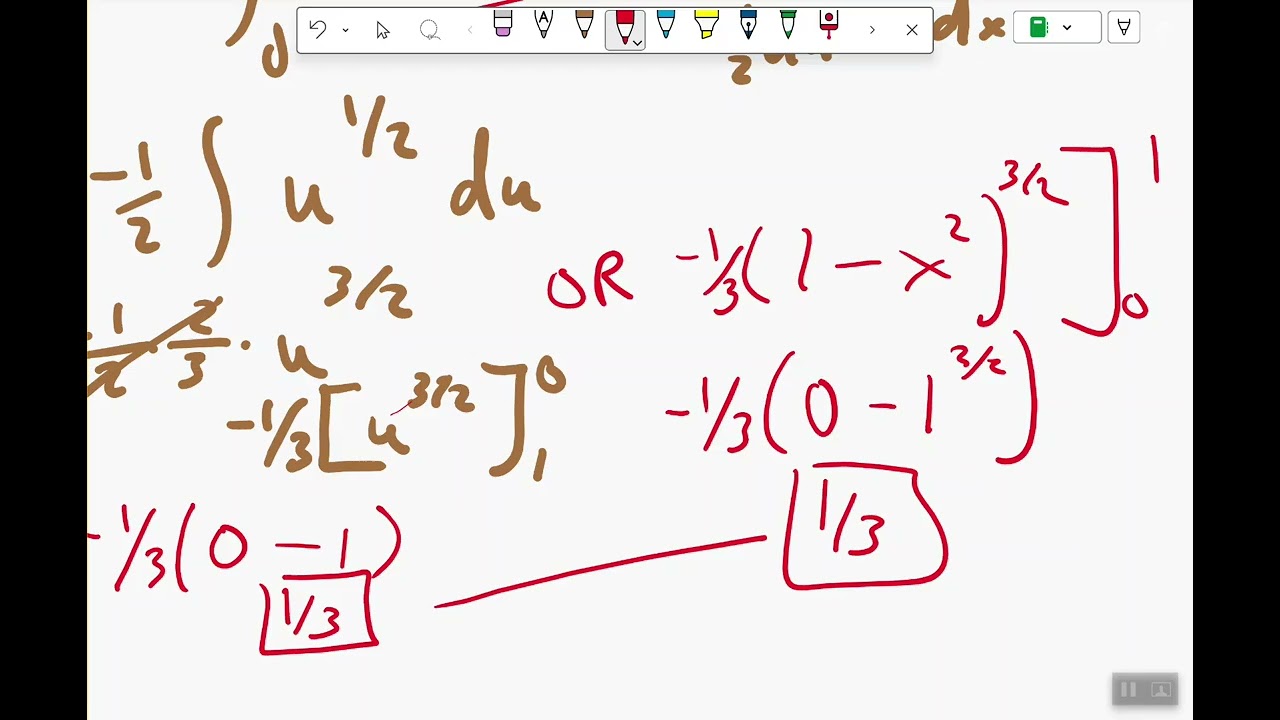 0 1/2 u dx
-1/2 ∫ u^{1/2} du
1/2 · 2/3 · u^{3/2}
-1/3 [u^{3/2}]_1^0
-1/3 (0 - 1)
1/3
OR -1/3 (1 - x^2)^{3/2} ]_0^1
-1/3 (0 - 1^{3/2})
1/3